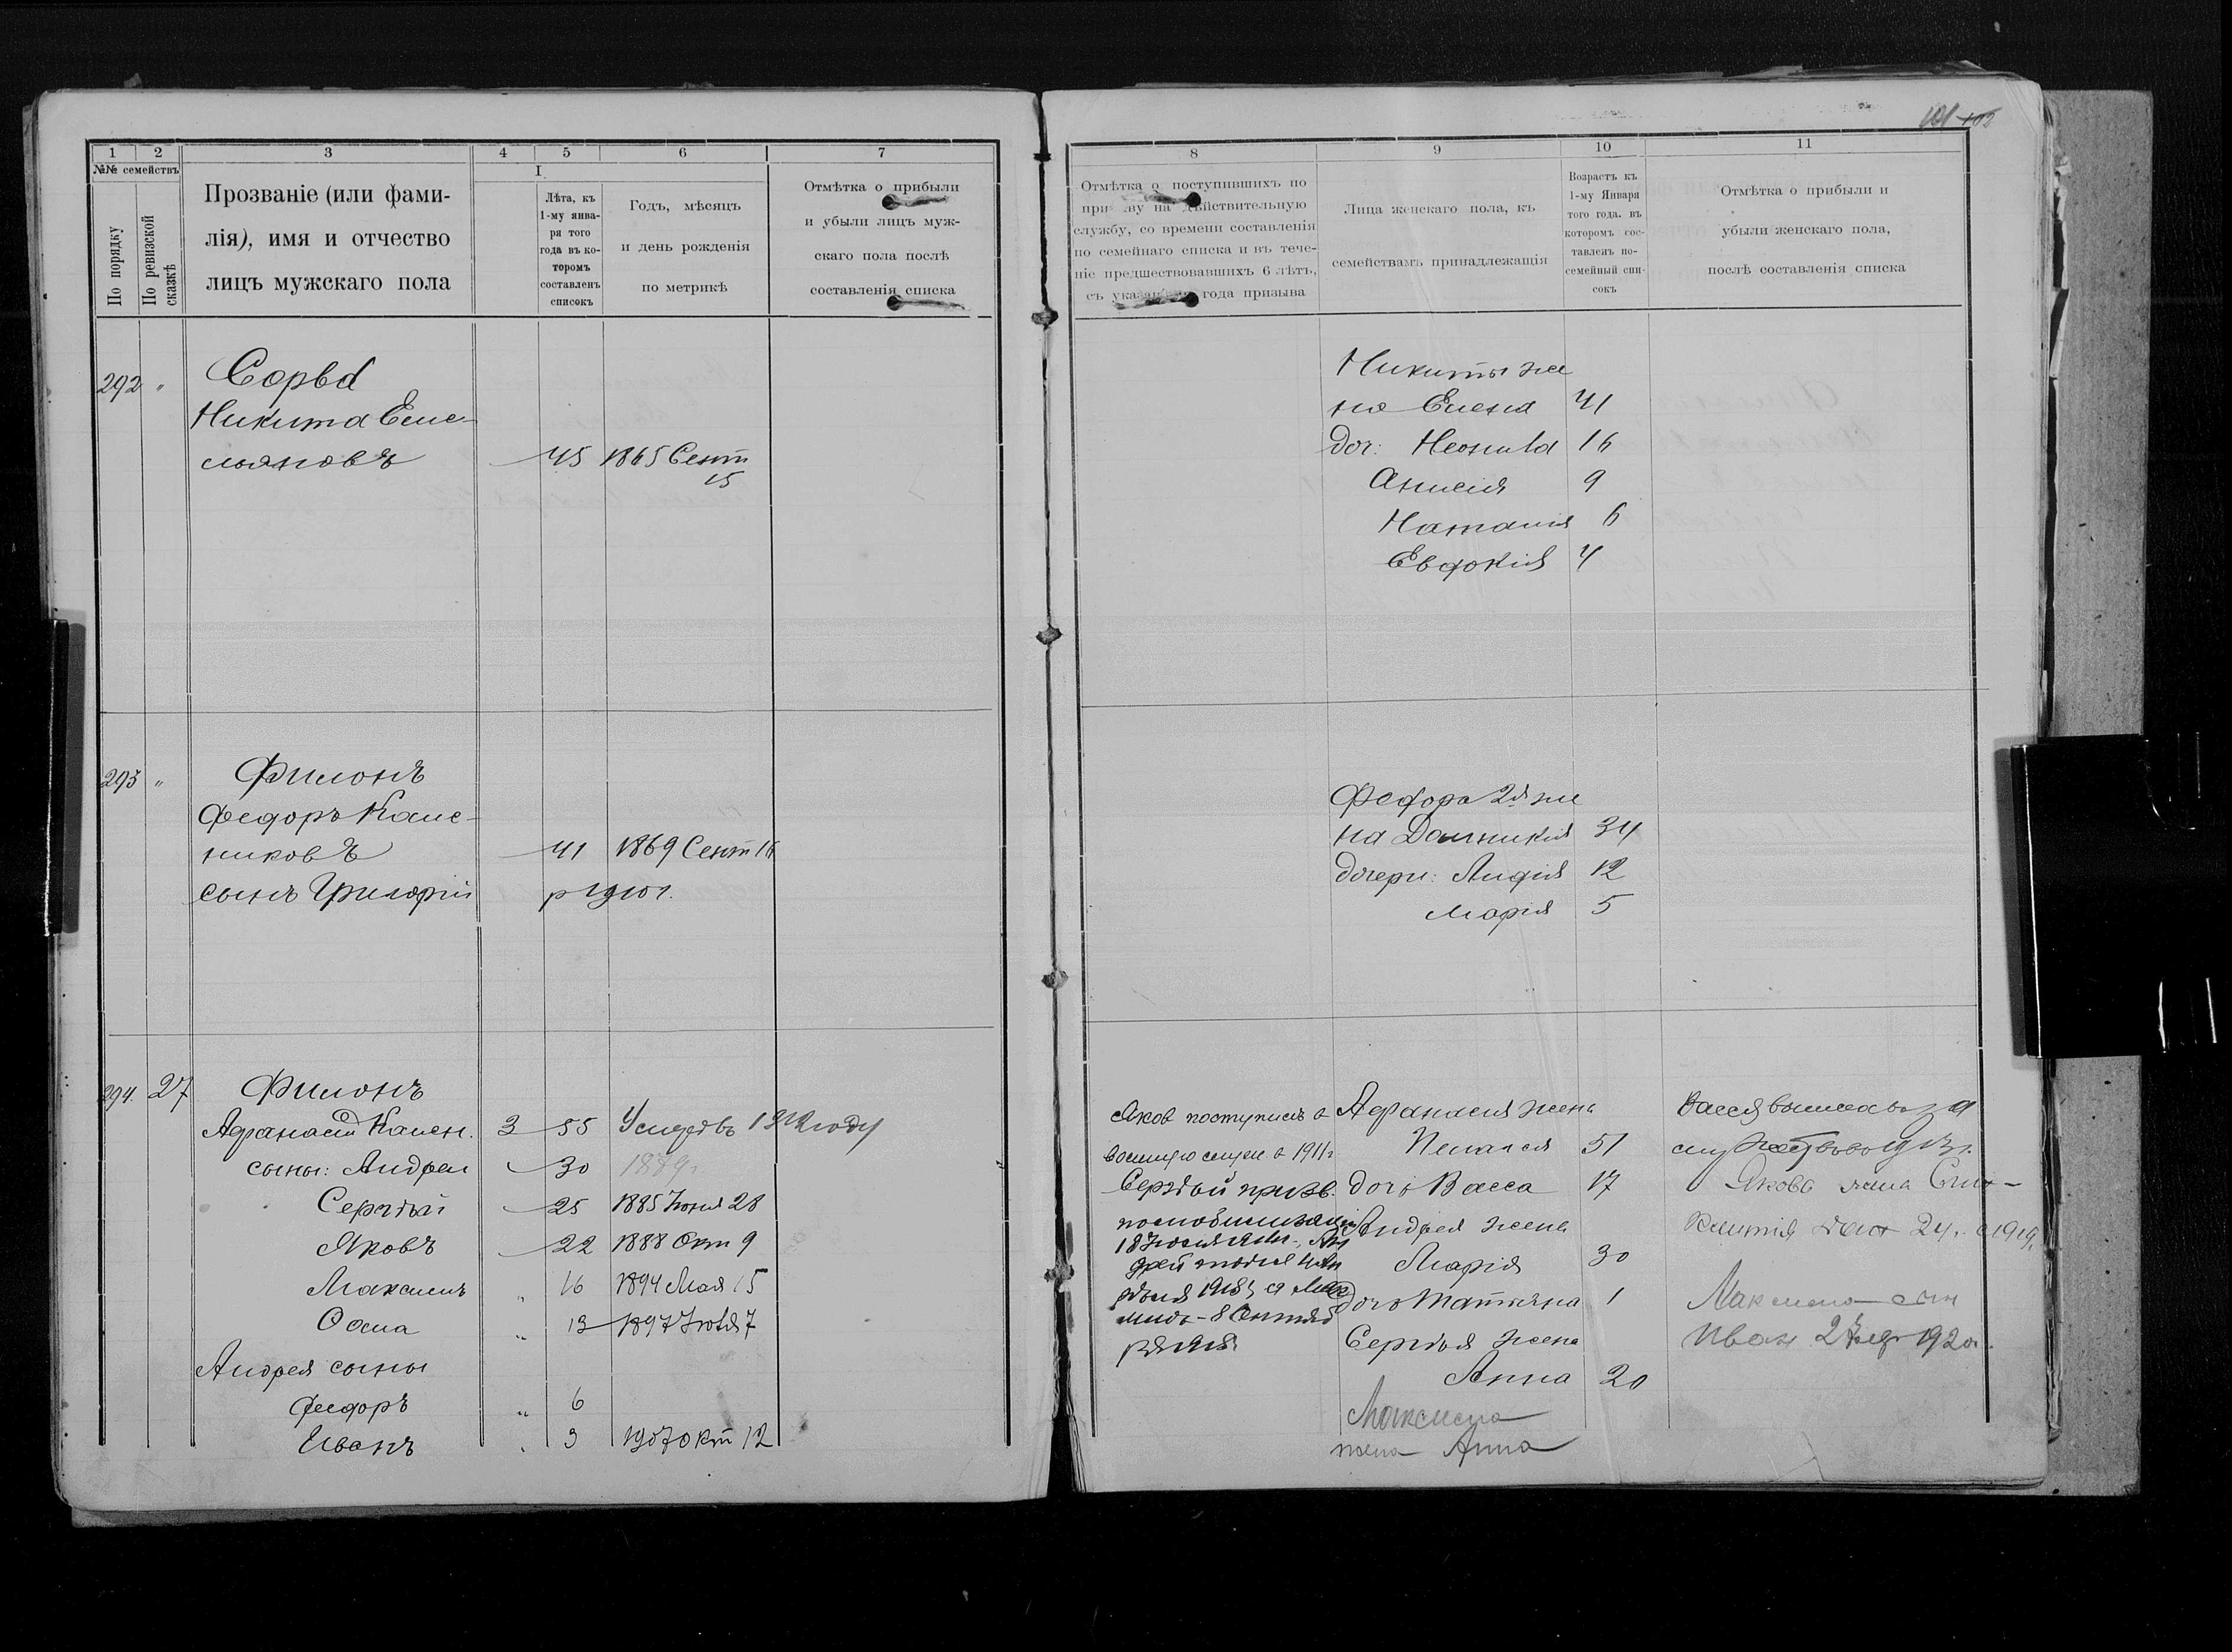 101 102
1
2
3
4
5
6
7
№№ семействъ
По порядку
По ревизской сказкѣ
Прозваніе (или фами-
лія), имя и отчество
лицъ мужскаго пола
I
Лѣта, къ
1-му янва-
ря того
года въ ко-
торомъ
составленъ
списокъ
Годъ, мѣсяцъ
и день рожденія
по метрикѣ
Отмѣтка о прибыли
и убыли лицъ муж-
скаго пола послѣ
составленія списка
8
9
10
11
Отмѣтка о поступившихъ по
при ву на дѣйствительную
службу, со времени составленія
по семейнаго списка и въ тече-
ніе предшествовавшихъ 6 лѣтъ,
съ года призыва
Лица женскаго пола, къ
семействамъ принадлежащія
Возрастъ къ
1-му Января
того года. въ
которомъ сос-
тавленъ по-
семейный спи-
сокъ
Отмѣтка о прибыли и
убыли женскаго пола,
послѣ составленія списка
292 "
Никита Еме-
льяновъ 45 1865 Сент
15
Никиты же
на Елена 41
доч: Неонила 16
Анисія 9
Наталія 6
Евдокія 4
293 "
Филонъ
Федоръ Калс-
никовъ 41 1869 Сент 16
сынъ Григорій р 1910 г.
Федора 2я же
на Домникія 34
дочери: Лидія 12
Марія 5
294. 27 Филонъ
Афанасій Кален. 3 55 Умеръ въ году
сыны: Андрей 30 1879 г
Сергѣй 25 1885 Іюня 28
Яковъ 22 1888 Окт 9
Максимъ " 16 1894 Мая 15
Осипа " 13 1897 7
Андрея сыны
Федоръ " 6
Иванъ " 3 1907 Окт 12
Яков поступилъ в
военную служ. в 1911 г
Сергѣй призв.
по мобилизаціи
18 Іюля Ан
дрей
Афанасія жена
Пелагея 51
дочь Васса 17
Андрея жена
Марія 30
дочь Татьяна 1
Сергѣя жена
Анна 20
Максима
жена Анна
Васся вышла за
му
Якова жена
24. 1919.
Максима сын
Иван 2 192